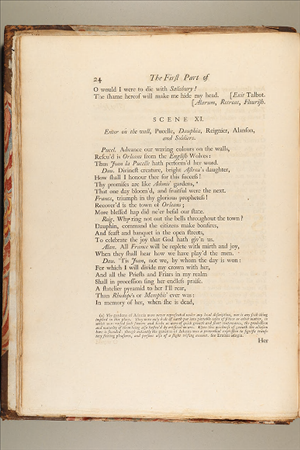 24 The First Part of
O would I were to die with Salisbury!
The shame hereof will make me hide my head. [Exit Talbot.
[Alarum, Retreat, Flourish.
SCENE XI.
Enter on the wall, Pucelle, Dauphin, Reignier, Alanson,
and Soldiers.
Pucel. Advance our waving colours on the walls,
Rescu'd is Orleans from the English Wolves:
Thus Joan la Pucelle hath perform'd her word.
Dau. Divinest creature, bright Astrea's daughter,
How shall I honour thee for this success!
Thy promises are like Adonis' gardens,
That one day bloom'd, and fruitful were the next.
France, triumph in thy glorious prophetess!
Recover'd is the town of Orleans;
More blessed hap did ne'er befal our state.
Reig. Why ring not out the bells throughout the town?
Dauphin, command the citizens make bonfires,
And feast and banquet in the open streets,
To celebrate the joy that God hath giv'n us.
Alan. All France will be replete with mirth and joy,
When they shall hear how we have play'd the men.
Dau. 'Tis Joan, not we, by whom the day is won:
For which I will divide my crown with her,
And all the Priests and Friars in my realm
Shall in procession sing her endless praise.
A statelier pyramid to her I'll rear,
Than Rhodope's or Memphis' ever was:
In memory of her, when she is dead,
Her